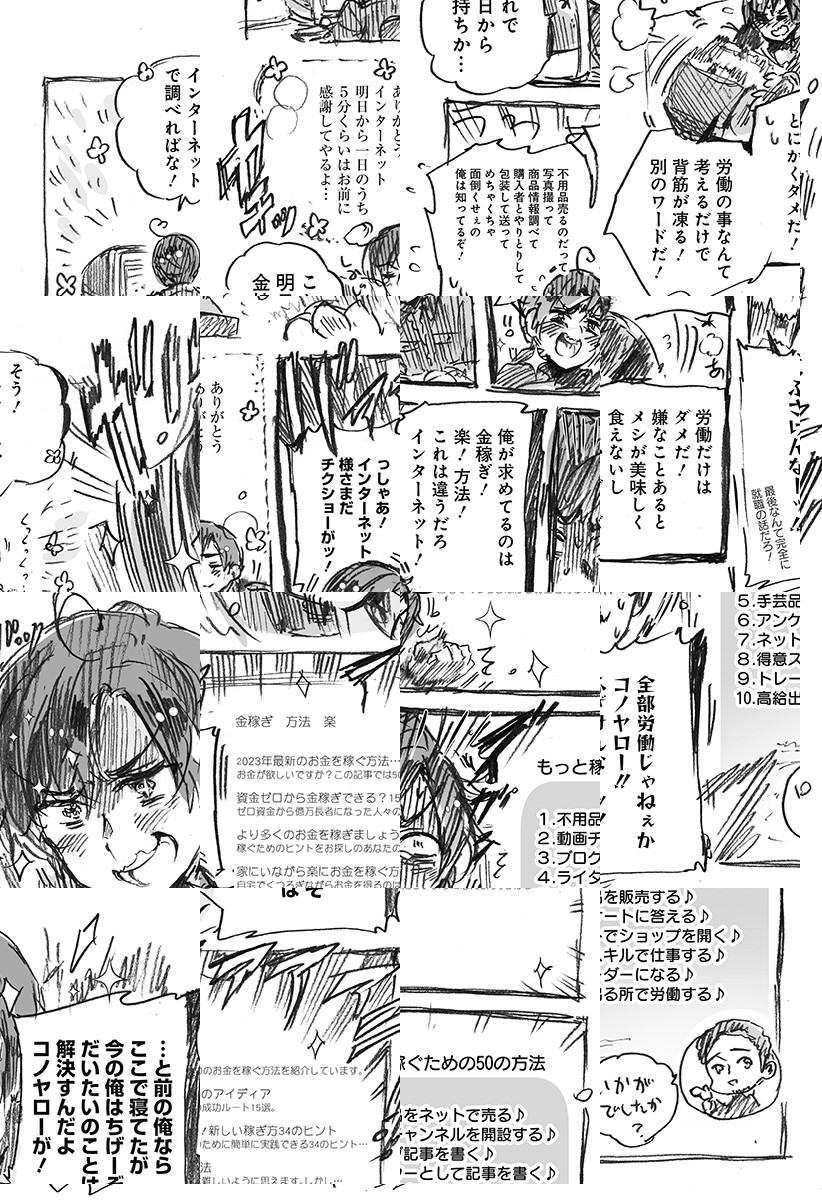 とにかくダメだ!
労働の事なんて
考えるだけで
背筋が凍る!
別のワードだ!
れで
日から
持ちか…
不用品売るのだって
写真撮って
商品情報調べて
購入者とやりとりして
包装して送って
めちゃくちゃ
面倒くせぇの
俺は知ってるぞ!
インターネット
明日から一日のうち
5分くらいはお前に
感謝してやるよ…
こ
明
金
インターネット
で調べればな!
最後なんて完全に
就職の話だろ!
労働だけは
ダメだ!
嫌なことあると
メシが美味しく
食えないし
俺が求めてるのは
金稼ぎ!
楽!方法!
これは違うだろ
インターネット!
っしゃあ!
インターネット
様さまだ
チクショーがッ!
ありがとう
そう!
5.手芸品
6.アンケ
7.ネット
8.得意ス
9.トレー
10.高給出
全部労働じゃねぇか
コノヤロー!!
もっと稼
1.不用品
2.動画チ
3.ブログ
4.ライタ
金稼ぎ 方法 楽
2023年最新のお金を稼ぐ方法…
お金が欲しいですか?この記事では50
資金ゼロから金稼ぎできる?15
ゼロ資金から億万長者になった人々の
より多くのお金を稼ぎましょう
稼ぐためのヒントをお探しのあなたの
家にいながら楽にお金を稼ぐ方
自宅でくつろぎながらお金を得るのは
を販売する♪
ートに答える♪
でショップを開く♪
スキルで仕事する♪
ダーになる♪
る所で労働する♪
いかが
でしたか
?
稼ぐための50の方法
をネットで売る♪
チャンネルを開設する♪
グ記事を書く♪
ーとして記事を書く♪
のお金を稼ぐ方法を紹介しています。
のアイディア
成功ルート15選。
!新しい稼ぎ方34のヒント
ために簡単に実践できる34のヒント…
法
難しいように思えます。しかし…
…と前の俺なら
ここで寝てたが
今の俺はちげーぞ
だいたいのことは
解決すんだよ
コノヤローが!